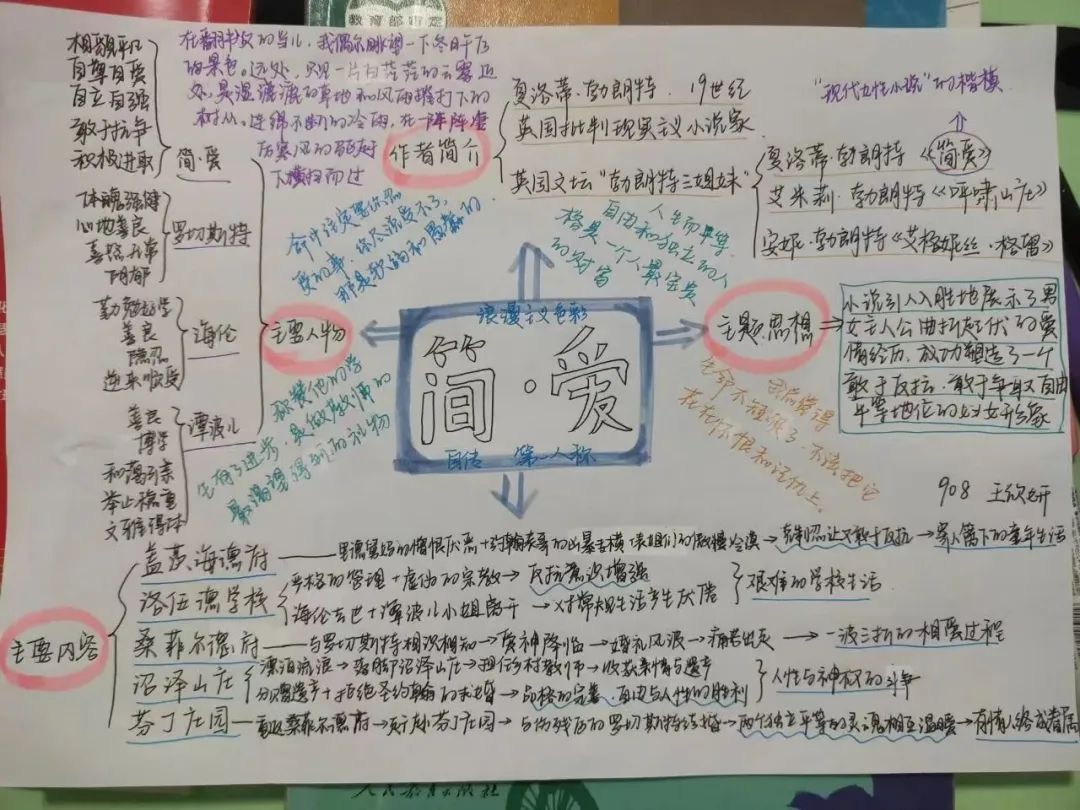 教育部审定
相貌平凡
自尊自爱
自立自强
敢于抗争
积极进取
简·爱
在翻书页的当儿，我偶尔眺望一下冬日午后
的景色。远处，只见一片白茫茫的云雾，近
处是湿漉漉的草地和风雨摧打下的
树丛。连绵不断的冷雨，在一阵阵凄
厉寒风的驱赶
下横扫而过
作者简介
夏洛蒂·勃朗特．19世纪
英国批判现实主义小说家
英国文坛“勃朗特三姐妹”
“现代女性小说”的楷模
夏洛蒂·勃朗特《简爱》
艾米莉·勃朗特《呼啸山庄》
安妮·勃朗特《艾格妮丝·格雷》
体魄强健
心地善良
喜怒无常
阴郁
罗切斯特
勤勉好学
善良
隐忍
逆来顺受
海伦
善良
博学
和蔼可亲
举止稳重
文雅得体
谭波儿
主要人物
命中注定要你忍
受的事，你尽说受不了，
那是软弱和愚蠢的
人生而平等
自由和独立的人
格是一个人最宝贵
的财富
浪漫主义色彩
简·爱
自传 第一人称
主题思想
小说引人入胜地展示了男
女主人公曲折起伏的爱
情经历，成功塑造了一个
敢于反抗、敢于争取自由
平等地位的妇女形象
称赞他的学
生有了进步，是做教师的
最渴望得到的礼物
我总觉得
生命不短暂了，不该把它
花在怀恨和记仇上。
908 王欣妍
主要内容
盖茨海德府——里德舅妈的憎恨厌恶+约翰表哥的凶暴专横+表姐们的傲慢冷漠→克制忍让又敢于反抗→寄人篱下的童年生活
洛伍德学校
严格的管理+虚伪的宗教→反抗意识增强
海伦去世+谭波儿小姐离开→对常规生活产生厌倦
艰难的学校生活
桑菲尔德府——与罗切斯特相识相知→爱神降临→婚礼风波→痛苦出走→一波三折的相爱过程
沼泽山庄
漂泊流浪→落脚沼泽山庄→担任乡村教师→收获亲情与遗产
分赠遗产+拒绝圣约翰的求婚→品格的完善、自由与人性的胜利
人性与神权的斗争
芬丁庄园—重返桑菲尔德府→赶赴芬丁庄园→与伤残后的罗切斯特结婚→两个独立平等的灵魂相互温暖→有情人终成眷属
人民教育出版社